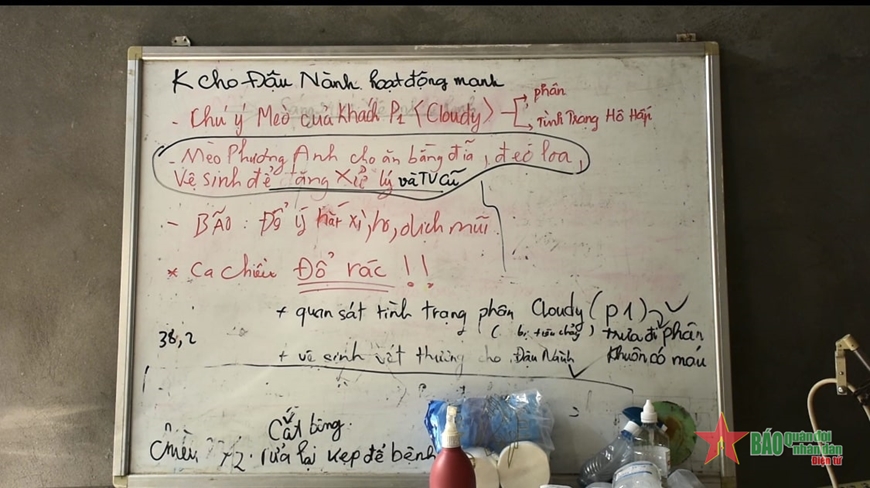 K cho Đậu Nành hoạt động mạnh
- Chú ý Mèo của Khách P1 <Cloudy>
phân
Tình Trạng Hô Hấp
- Mèo Phương Anh cho ăn bằng đĩa, đeo loa,
Vệ sinh để tăng Xử lý và TV cũ
- BÃO: Để ý hắt xì, ho, dịch mũi
* Ca chiều Đổ rác !!
+ quan sát tình trạng phân Cloudy (P1)
trưa đi phân
khuôn có máu
38,2
+ vệ sinh vết thương cho Đậu Nành
Cắt bing
Chiều T2. rửa lại kẹp để bệnh
BÁO quân đội
nhân dân
Điện tử